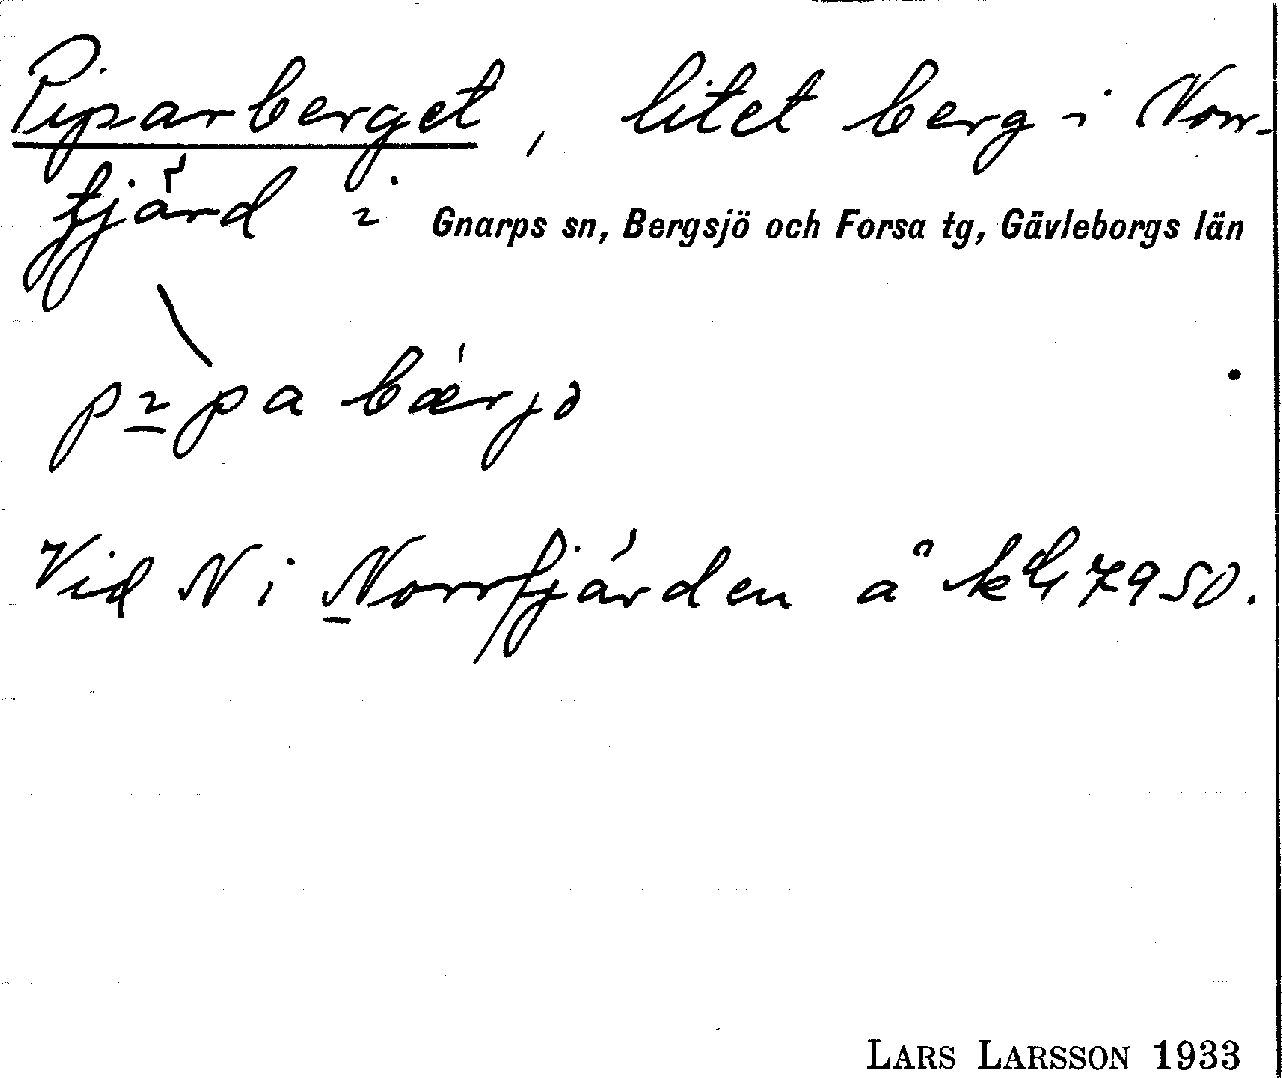 Piparberget, litet berg i Norr-
fjärd i Gnarps sn, Bergsjö och Forsa tg, Gävleborgs län
pipa bærjo
Vid N i Norrfjärden å kbl 7950.
LARS LARSSON 1933